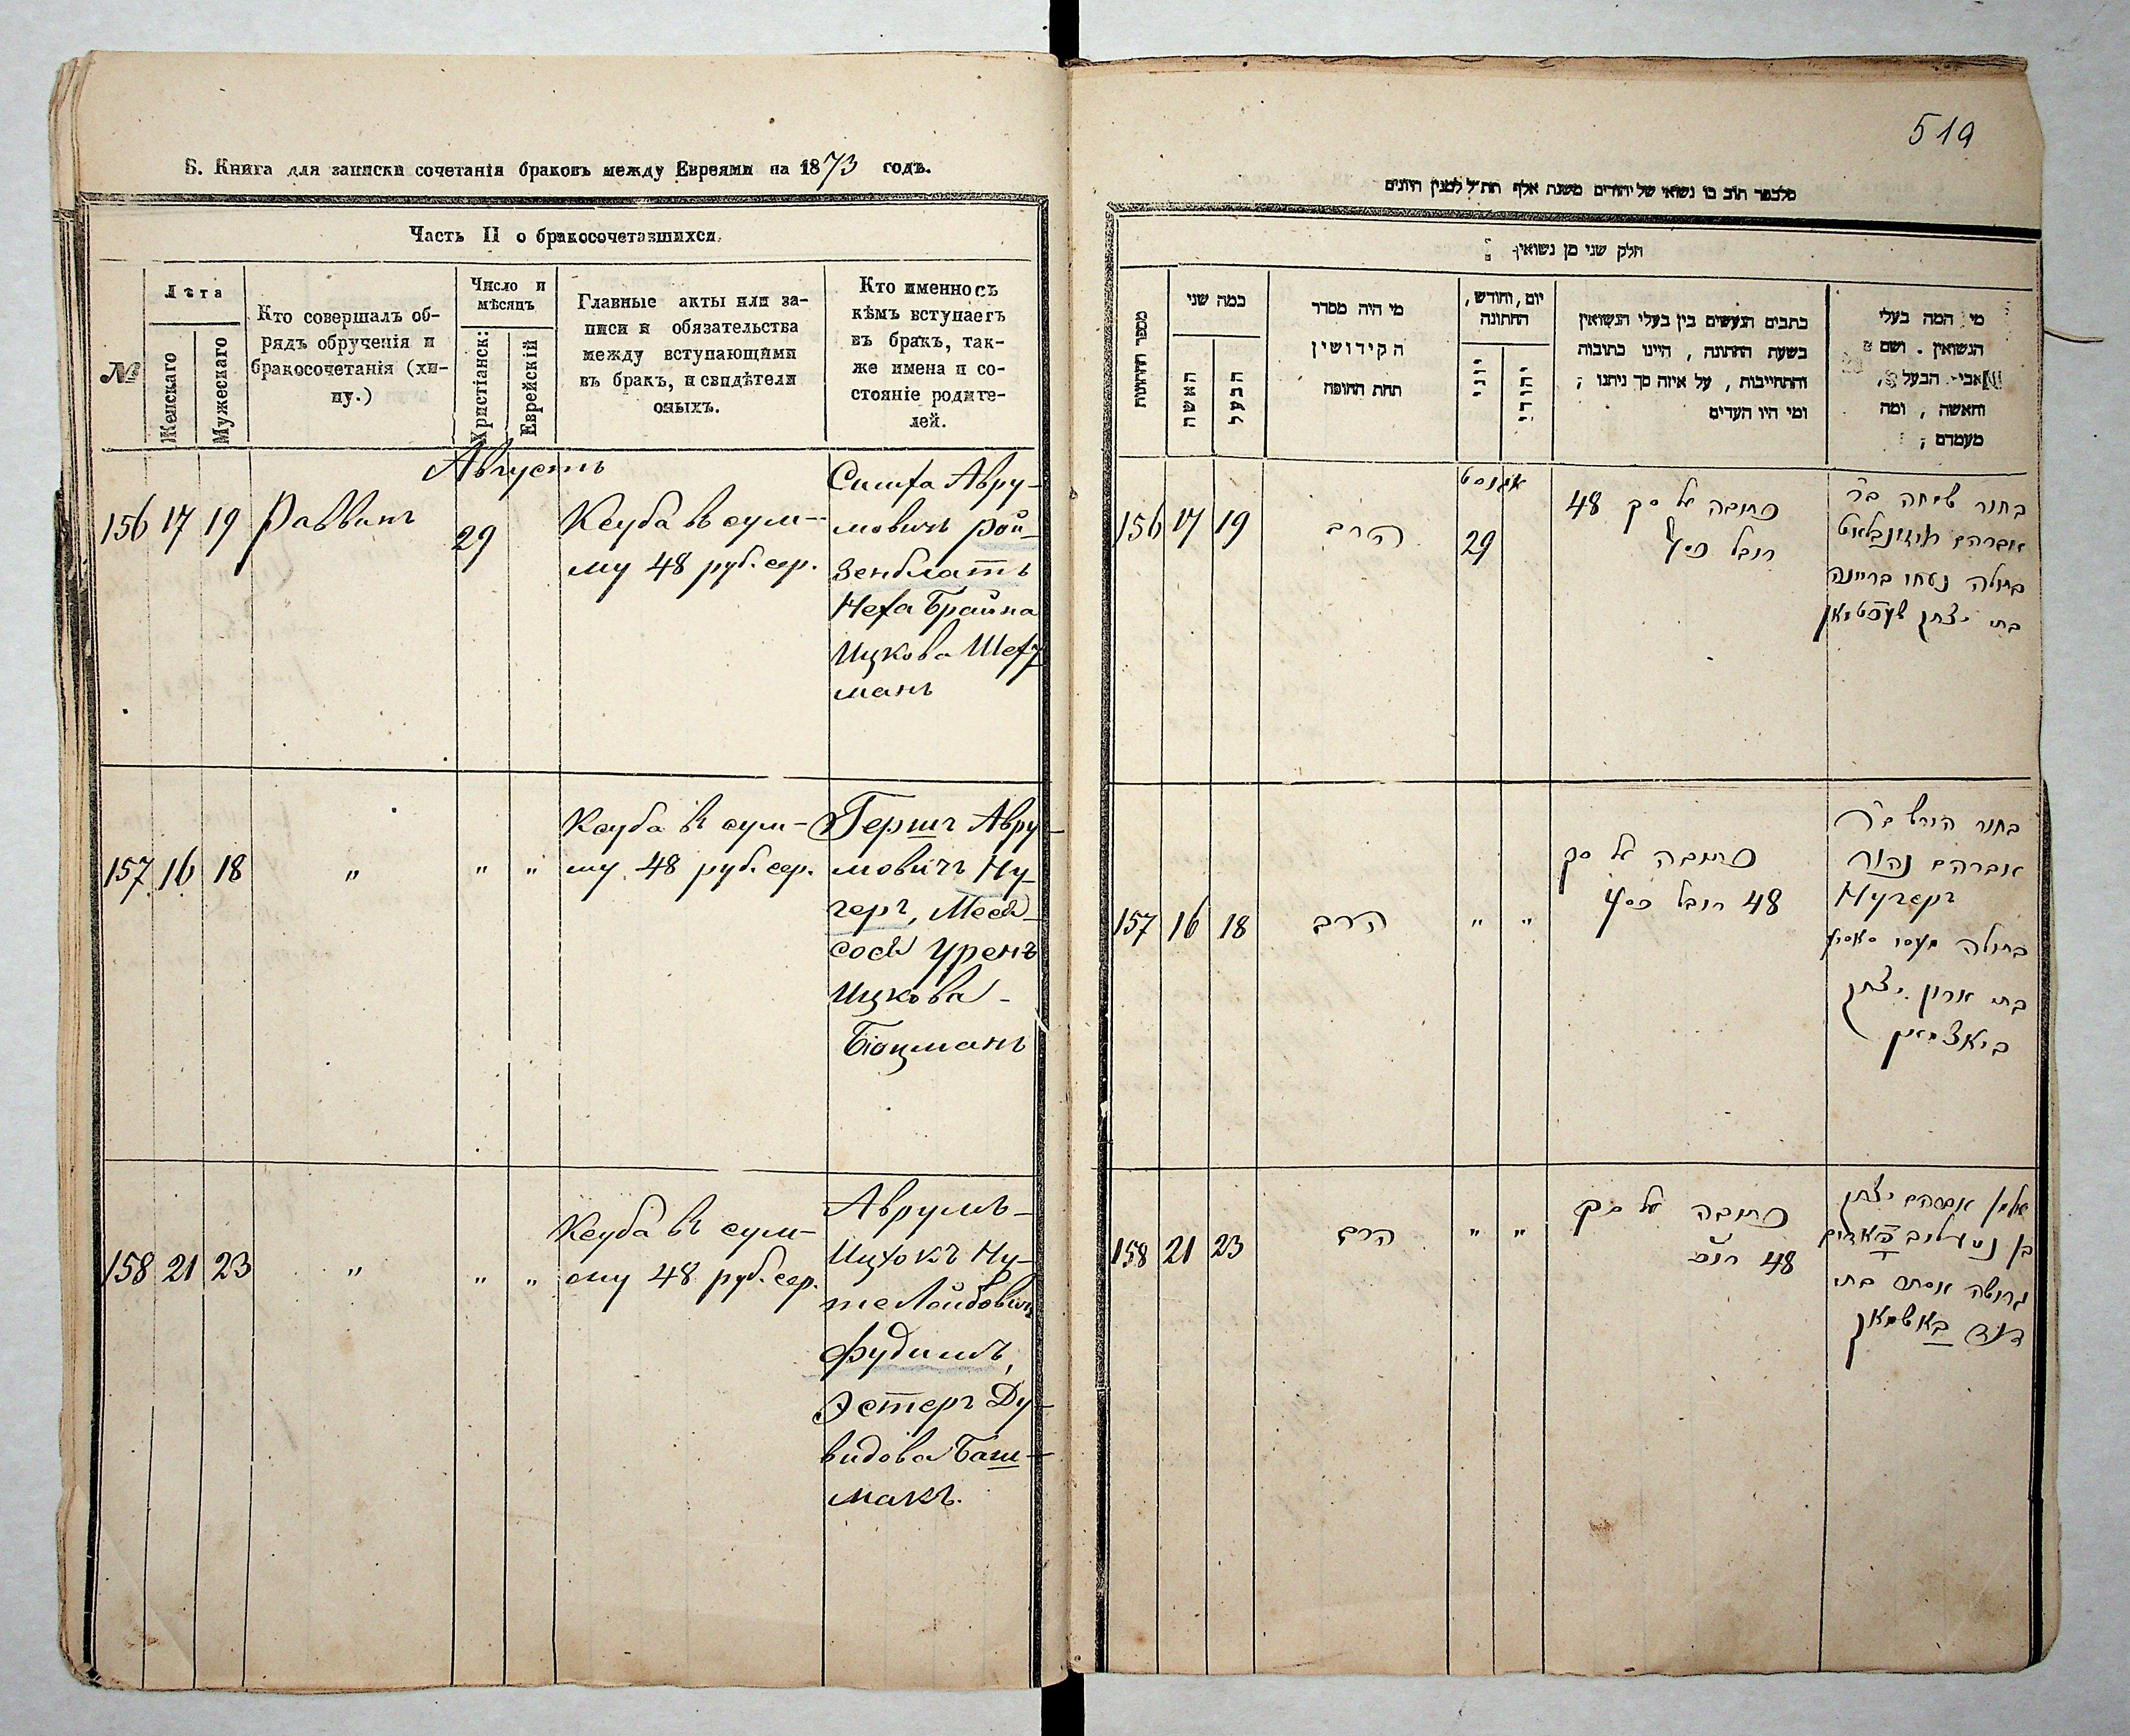 Б. Книга для записки сочетанія браковъ между Евреями на 1873 годъ.
Часть II о бракосочетавшихся.
№
Лѣта
Женскаго
Мужескаго
Кто совершалъ об-
рядъ обрученія и
бракосочетанія (хи-
пу.)
Число и
мѣсяцъ
Христіанск:
Еврейскій
Главные акты или за-
писи и обязательства
между вступающими
въ бракъ, и свидѣтели
оныхъ.
Кто именно съ
кѣмъ вступаетъ
въ бракъ, так-
же имена и со-
стояніе родите-
лей.
Августъ
156 17 19 Раввинъ 29
Ксуба въ сум-
му 48 руб. сер.
Симха Авру-
мовичъ Рой-
зенблатъ
Неха Брайна
Ицкова Шехт
манъ
157 16 18 " " "
Ксуба въ сум-
му 48 руб. сер.
Гершъ Авру-
мовичъ Ну-
херъ,
Ицкова
Боцманъ
158 21 23 " " "
Ксуба въ сум-
му 48 руб. сер.
Аврумъ-
Ицхокъ Ну-
те Лейбовичъ
Фудимъ,
Эстеръ Ду-
видова Баш-
макъ.
519
חלק שני מן נשואין
מספר הזיווגות
כמה שני
האשה
הבעל
מי היה מסדר
הקידושין
תחת החופה
יום, וחודש,
החתונה
יוני
יהודי
כתבים הנעשים בין בעלי הנשואין
בשעת החתונה, היינו כתובות
והתחייבות, על איזה סך ניתנו;
ומי היו העדים
מי המה בעלי
הנשואין. ושם
אבי הבעל,
והאשה, ומה
מעמדם;
אוגוסט
156 17 19 הרב 29
כתובה על סך 48
רובל כסף
בחור שמחה ב"ר
אברהם רויזנבלאט
בתולה נעחי בריינה
בת יצחק שעכטמאן
157 16 18 הרב " "
כתובה על סך
48 רובל כסף
בחור הירש ב"ר
אברהם
Нухеръ
בתולה
בת ארון יצחק
באצמאן
158 21 23 הרב " "
כתובה על סך
48
אברהם יצחק
בן
גרושה אסתר בת
דוד באשמאק